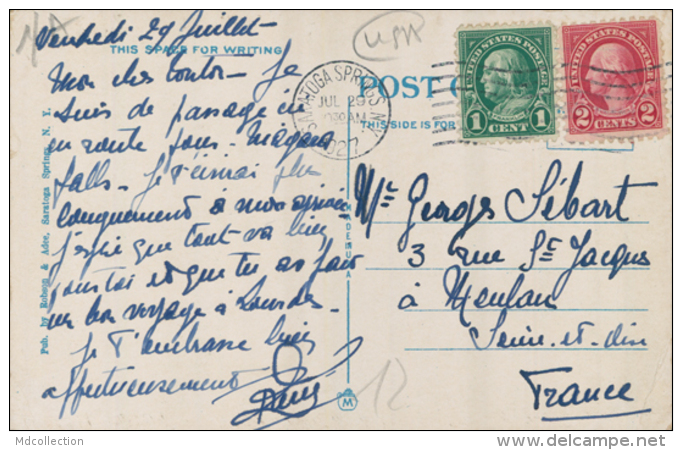 Vendredi 29 Juillet
THIS SPACE FOR WRITING
Mon cher tonton - Je
suis de passage ici
en route pour Niagara
Falls - Je t'écrirai plus
longuement à mon arrivée
j'espère que tout va bien
pour toi et que tu as fait
un bon voyage à Lourdes.
Je t'embrasse bien
affectueusement
Pub. by Robson & Adee, Saratoga Springs, N. Y.
USA
SARATOGA SPRINGS N.Y.
JUL 29
AM
1927
POST C
THIS SIDE IS FOR
UNITED STATES POSTAGE
1 CENT 1
UNITED STATES POSTAGE
2 CENTS 2
MADE IN U.S.A.
M
Mr Georges Sébart
3 rue St Jacques
à Meulan
Seine-et-Oise
France
12
Mdcollection
www.delcampe.net